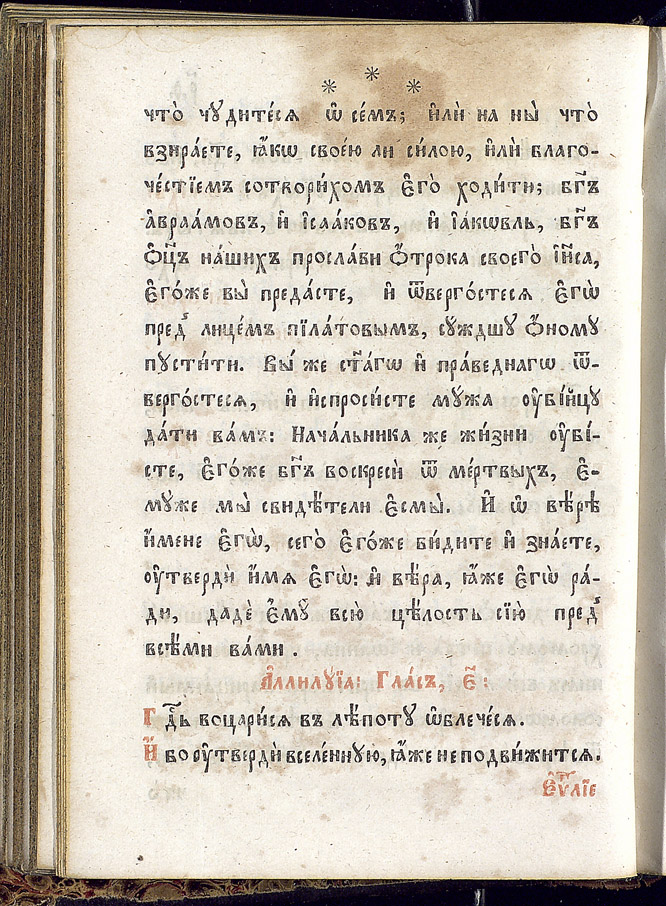 * * *
что̀ чꙋдите́сѧ ѡ҆ се́мъ; и҆лѝ на ны̀ что̀
взира́ете, ꙗ҆́кѡ свое́ю ли си́лою, и҆лѝ благо-
че́стїемъ сотвори́хомъ є҆го̀ ходи́ти; бг҃ъ
а҆враа́мовъ, и҆ і҆саа́ковъ, и҆ і҆а́кѡвль, бг҃ъ
ѻ҆ц҃ъ на́шихъ просла́ви ѻ҆́трока своего̀ і҆и҃са,
є҆го́же вы̀ преда́сте, и҆ ѿверго́стесѧ є҆гѡ̀
пред̾ лице́мъ пїла́товымъ, сꙋ́ждшꙋ ѻ҆́номꙋ
пꙋсти́ти. Вы́ же ст҃а́гѡ и҆ пра́веднагѡ ѿ-
верго́стесѧ, и҆ и҆спроси́сте мꙋ́жа ᲂу҆бі́йцꙋ
да́ти ва́мъ: Нача́льника же жи́зни ᲂу҆бі́-
сте, є҆го́же бг҃ъ воскресѝ ѿ ме́ртвыхъ, є҆-
мꙋ́же мы̀ свидѣ́тели є҆смы̀. И҆ ѡ҆ вѣ́рѣ
и҆́мене є҆гѡ̀, сего̀ є҆го́же ви́дите и҆ зна́ете,
ᲂу҆твердѝ и҆́мѧ є҆гѡ̀: и҆ вѣ́ра, ꙗ҆́же є҆гѡ̀ ра́-
ди, дадѐ є҆мꙋ̀ всю̀ цѣ́лость сїю̀ пред̾
всѣ́ми ва́ми.
А҆ллилꙋ́їа: Гла́съ, є҃:
Гдⷭ҇ь воцари́сѧ въ лѣ́потꙋ ѡ҆блече́сѧ.
И҆́бо ᲂу҆твердѝ вселе́ннꙋю, ꙗ҆́же не подви́житсѧ.
Є҆ѵⷢ҇лїе